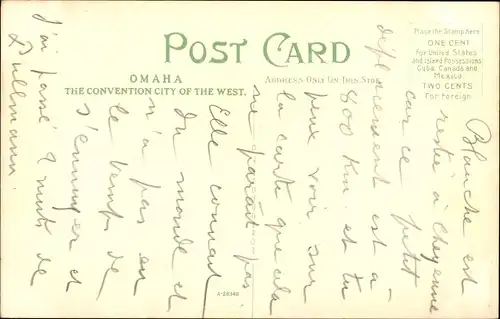 POST CARD
OMAHA
THE CONVENTION CITY OF THE WEST.
ADDRESS ONLY ON THIS SIDE
Place the Stamp here
ONE CENT
for United States
and Island Possessions
Cuba, Canada and
Mexico
TWO CENTS
For Foreign
Blanche est
restée à Cheyenne
car ce petit
déplacement est à
800 Km. et tu
peux voir sur
la carte que cela
ne paraît pas
Elle connait
du monde et
n'a pas eu
le temps de
s'ennuyer et
j'ai passé 2 nuits de
Pullmann.
A-28346